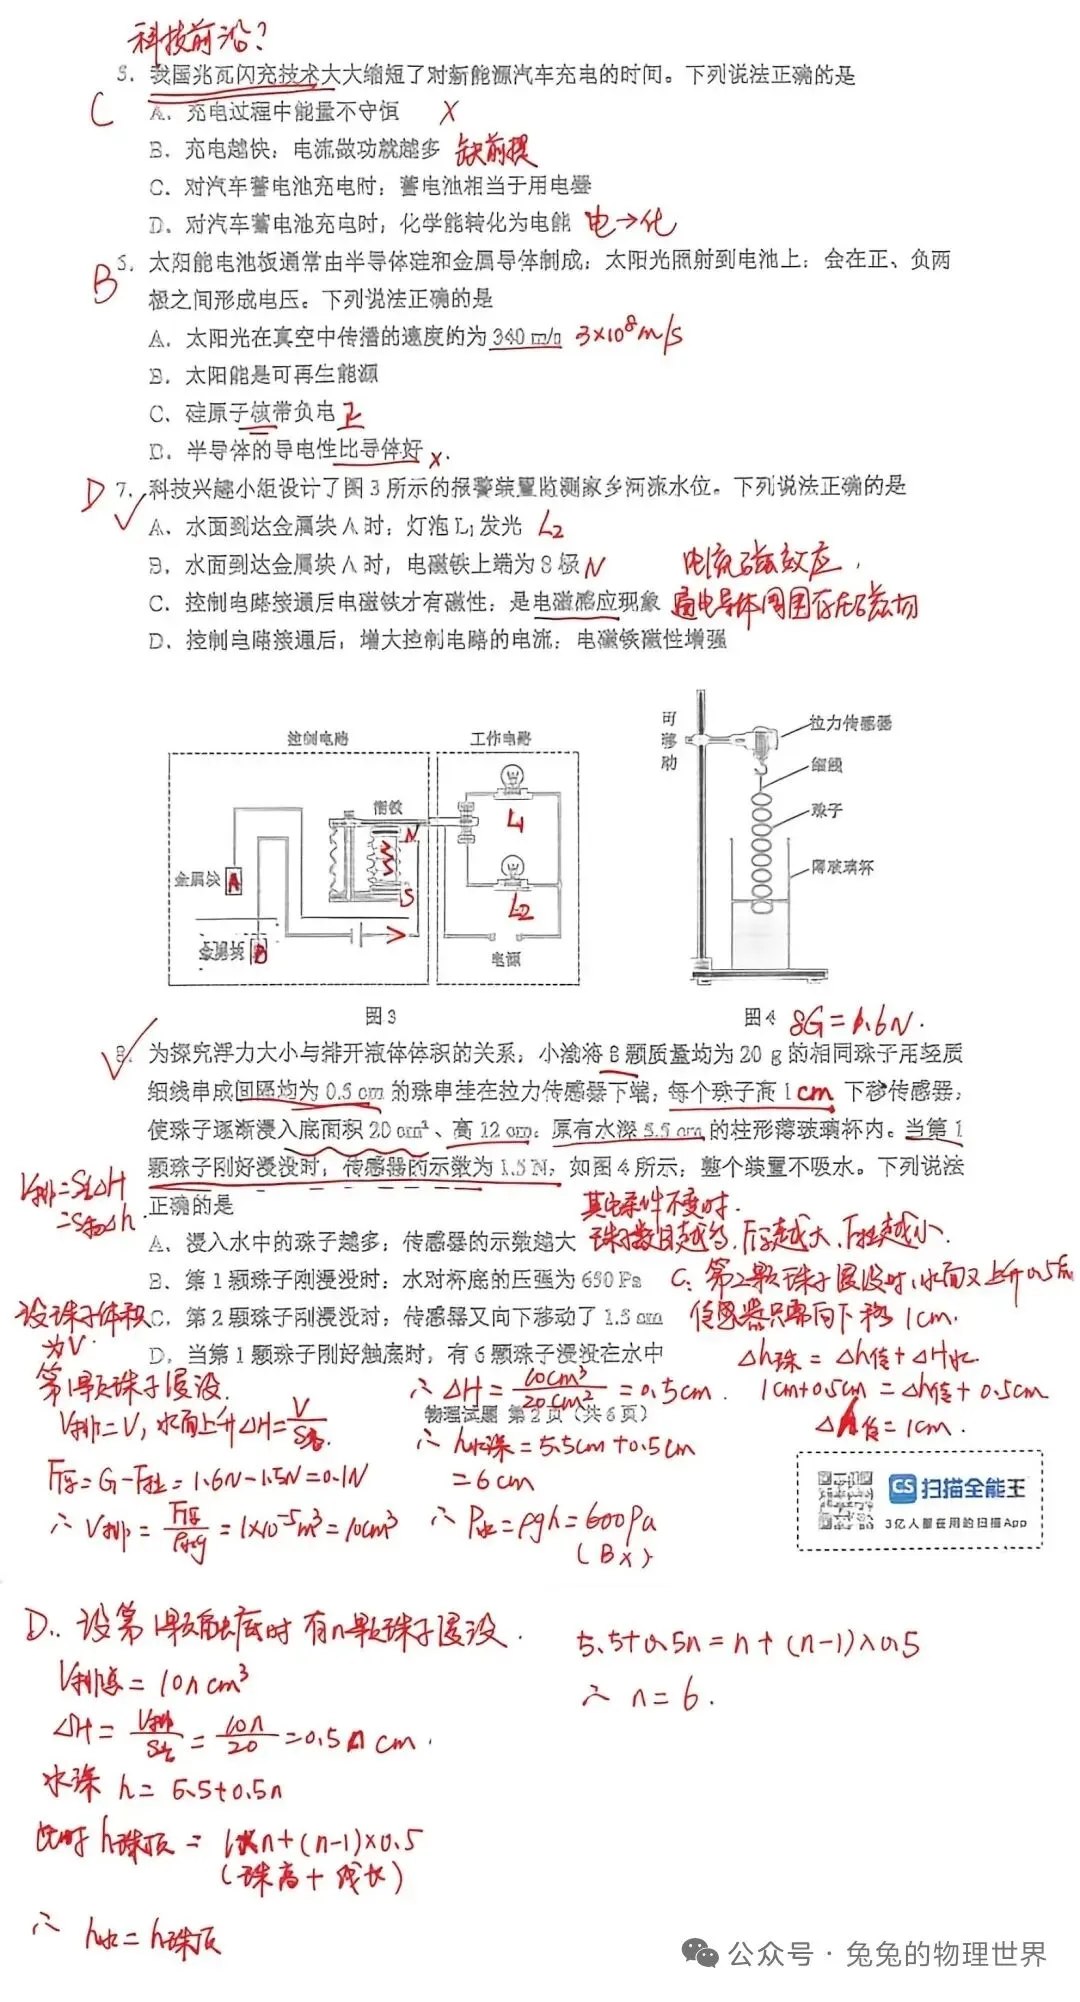 科技前沿?
5. 我国兆瓦闪充技术大大缩短了对新能源汽车充电的时间。下列说法正确的是
C
A. 充电过程中能量不守恒 X
B. 充电越快，电流做功就越多 缺前提
C. 对汽车蓄电池充电时，蓄电池相当于用电器
D. 对汽车蓄电池充电时，化学能转化为电能 电→化
B
6. 太阳能电池板通常由半导体硅和金属导体制成，太阳光照射到电池上，会在正、负两
极之间形成电压。下列说法正确的是
A. 太阳光在真空中传播的速度约为 340 m/s 3×10⁸m/s
B. 太阳能是可再生能源
C. 硅原子核带负电 正
D. 半导体的导电性比导体好 x.
D
7. 科技兴趣小组设计了图 3 所示的报警装置监测家乡河流水位。下列说法正确的是
A. 水面到达金属块 A 时，灯泡 L₁ 发光 L2
B. 水面到达金属块 A 时，电磁铁上端为 S 极 N
电流磁效应.
C. 控制电路接通后电磁铁才有磁性，是电磁感应现象 通电导体周围存在磁场
D. 控制电路接通后，增大控制电路的电流，电磁铁磁性增强
控制电路
工作电路
衔铁
N
S
L1
L2
金属块 A
金属块 B
电源
图 3
可移动
拉力传感器
细线
珠子
薄玻璃杯
图 4
8G=1.6N.
8. 为探究浮力大小与排开液体体积的关系，小渝将 8 颗质量均为 20 g 的相同珠子用轻质
细线串成间隔均为 0.5 cm 的珠串挂在拉力传感器下端，每个珠子高 1 cm 下移传感器，
使珠子逐渐浸入底面积 20 cm²、高 12 cm、原有水深 5.5 cm 的柱形薄玻璃杯内。当第 1
颗珠子刚好浸没时，传感器的示数为 1.5 N，如图 4 所示，整个装置不吸水。下列说法
正确的是
V排=S容ΔH
=S物Δh
其它条件不变时.
A. 浸入水中的珠子越多，传感器的示数越大 珠子数目越多,F浮越大,F拉越小.
B. 第 1 颗珠子刚浸没时，水对杯底的压强为 650 Pa
C. 第 2 颗珠子刚浸没时，传感器又向下移动了 1.5 cm
D. 当第 1 颗珠子刚好触底时，有 6 颗珠子浸没在水中
C: 第2颗珠子浸没时,水面又上升0.5cm
传感器只需向下移1cm.
Δh珠=Δh传+ΔH水
1cm+0.5cm=Δh传+0.5cm
Δh传=1cm.
设珠子体积
为V.
第1颗珠子浸没.
V排=V, 水面上升ΔH=V/S容
F浮=G-F拉=1.6N-1.5N=0.1N
∴ V排=F浮/ρ水g=1×10⁻⁵m³=10cm³
∴ ΔH=10cm³/20cm²=0.5cm.
物理试题 第 2 页（共 6 页）
∴ h水深=5.5cm+0.5cm
=6cm
∴ P水=ρgh=600Pa
(B×)
CS 扫描全能王
3亿人都在用的扫描App
D.. 设第1颗触底时有n颗珠子浸没.
V排总=10n cm³
ΔH=V排/S容=10n/20=0.5n cm.
水深 h=5.5+0.5n
此时 h珠顶=1×n+(n-1)×0.5
(珠高+线长)
∴ h水=h珠顶
5.5+0.5n=n+(n-1)×0.5
∴ n=6.
公众号·兔兔的物理世界